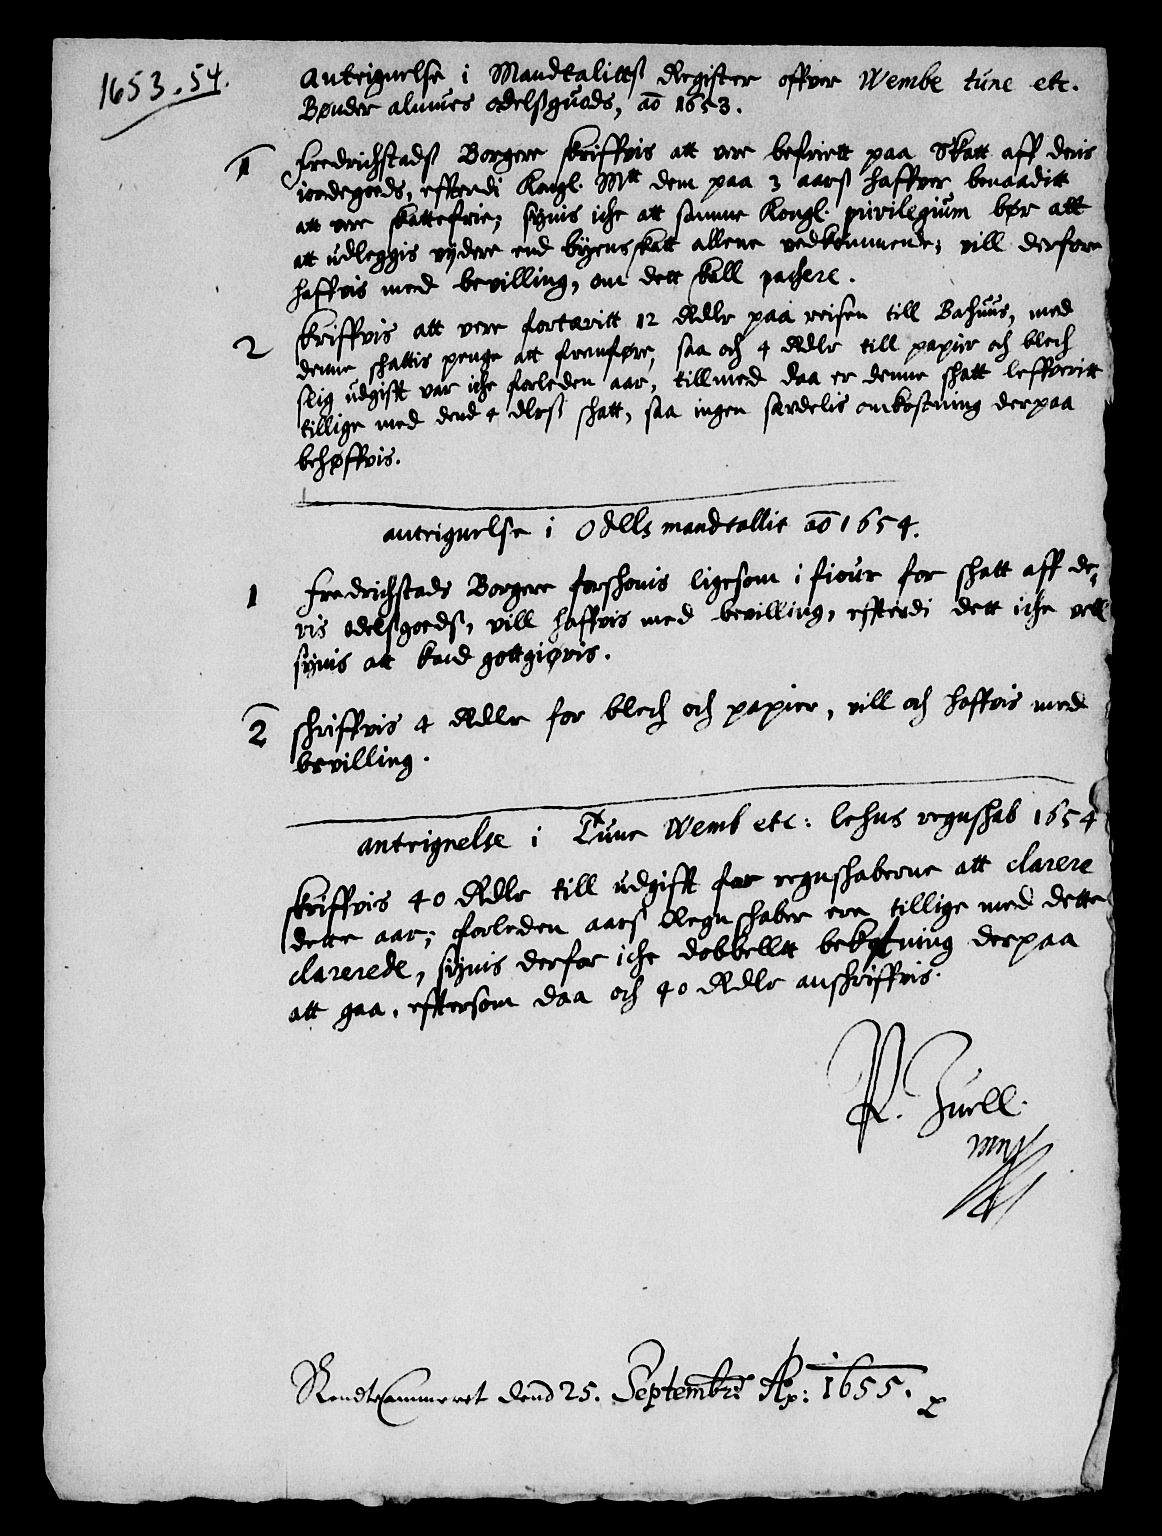 1653.54.
Anteignelse i Mandtalittß Register offver Wembe tune etc.
Bønder alnues odelßguods, ao 1653.
1 Fredrichstadß Borgere skriffvis att vere befriett paa Skatt aff deris
iordegoeds, effterdi Kongl. Mtt dem paa 3 aarß haffver benaaditt
att vere skattefrie; synis iche att samme Kongl. privilegium bør att
att udleggis vydere end byens skatt allene vedkommende; vill derfore
haffvis med bevilling, om dett skall pachere.
2 Skriffvis att vere fortæritt 12 Rdlr paa reisen till Bahuus, med
denne shattis penge att fremføre, saa och 4 Rdlr till papier och blech
slig udgifft var iche forleden aar, tillmed daa er denne shatt leffveritt
tillige med dend 4 dlrß shatt, saa ingen særdelis omkostning derpaa
behøffvis.
anteignelse i Odells mandtallit ao 1654.
1 Fredrichstads Borgere forshonis ligesom i fiour for shatt aff de,
ris odelßgoedß, vill haffvis med bevilling, effterdi dett iche vell
synis att kand gottgiøris.
2 shriffvis 4 Rdlr for blech och papier, vill och haffvis med
bevilling.
anteignelse i Tune Wemb etc: lehns regnshab 1654
skriffvis 40 Rdlr till udgifft for regnshaberne att clarere
dette aar; forleden aarß Regnshaber ere tillige med dette
clarerede, synis derfor iche dobbellt bekostning derpaa
att gaa, efftersom daa och 40 Rdlr anshriffvis.
P. Juell.
mp
RendteCammeret dend 25. Septembrs Ao: 1655.